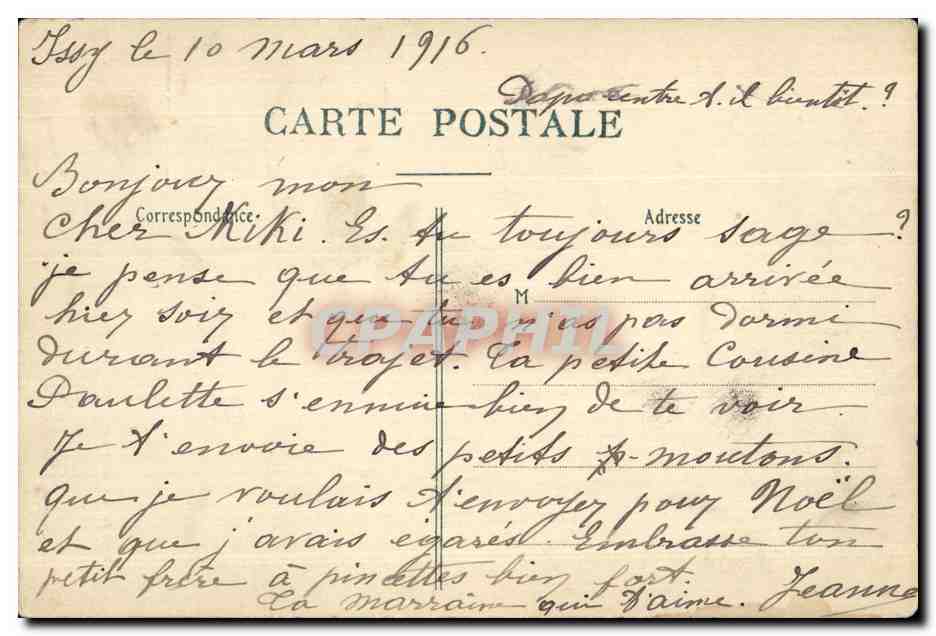 Issy le 10 mars 1916.
Papa rentre t. il bientôt. ?
CARTE POSTALE
Bonjour mon
Correspondance
Adresse
Cher Kiki. Es. tu toujours sage ?
je pense que tu es bien arrivée
M
hier soir et que tu n'as pas dormi
CPAPHIL
durant le trajet. Ta petite Cousine
Paulette s'ennuie bien de te voir.
Je t'envoie des petits moutons.
que je voulais t'envoyer pour Noël
et que j'avais égarés. Embrasse ton
petit frère à pincettes bien fort.
Ta marraine qui t'aime. Jeanne